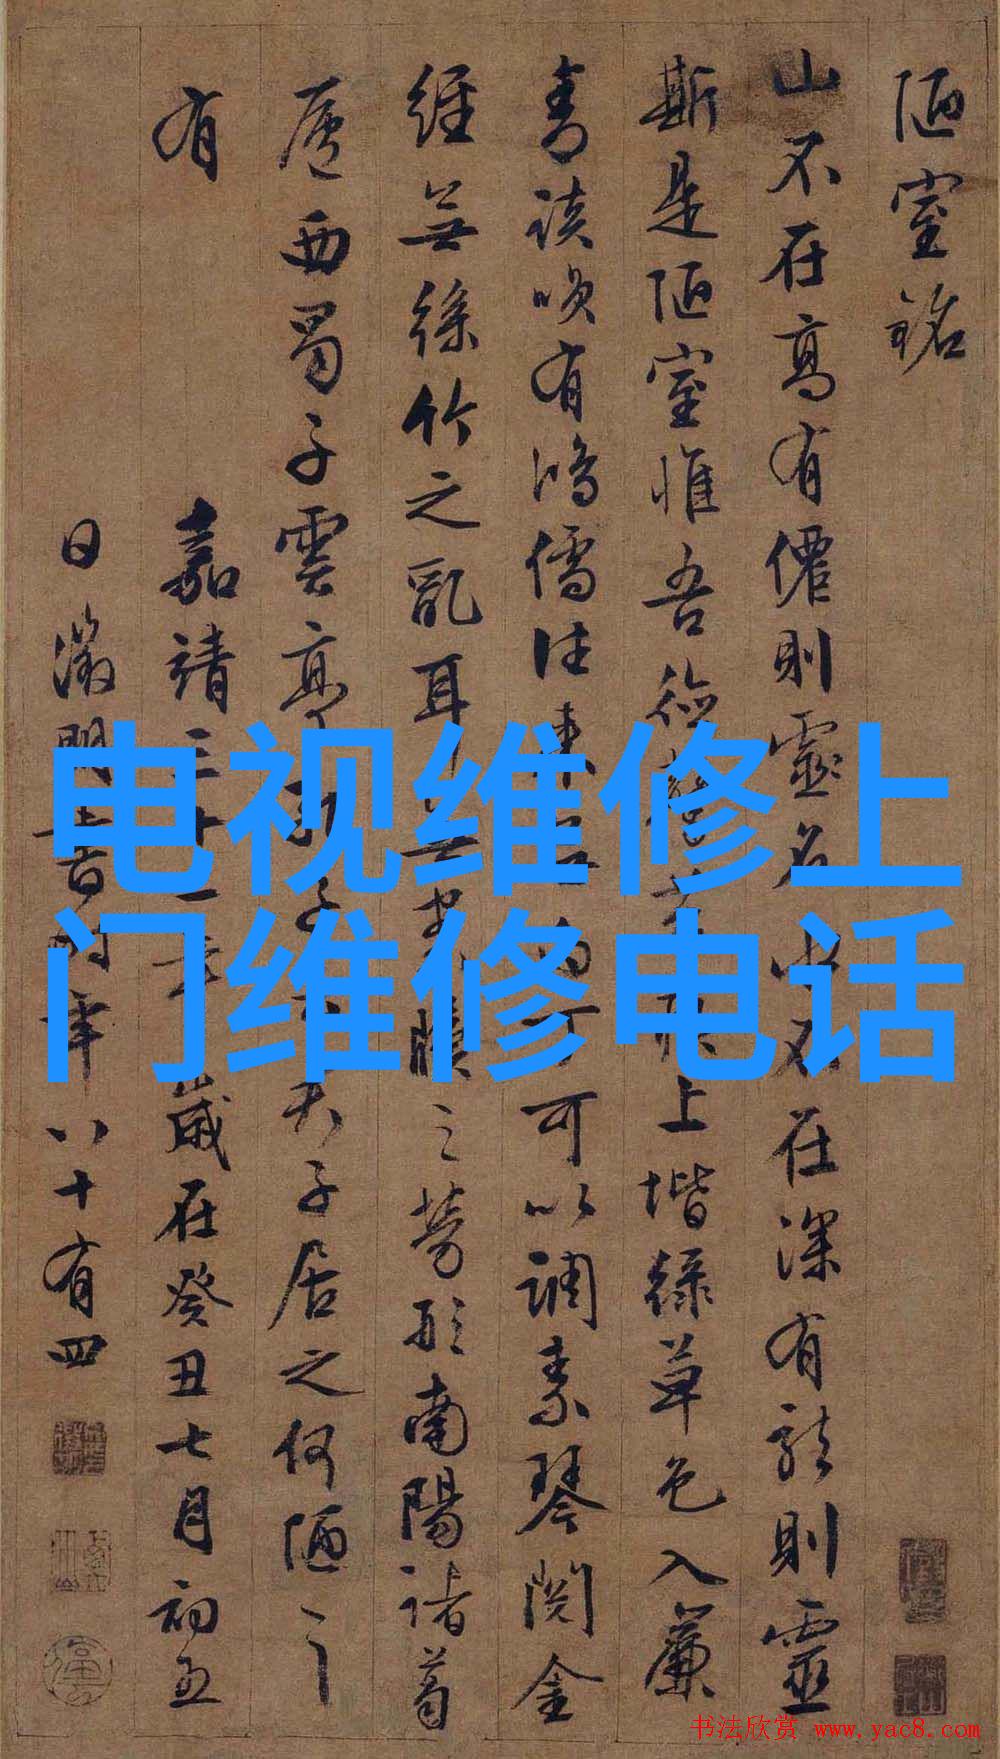 陋室銘
山不在高有僊則靈名水不在深有龍則靈
斯是陋室惟吾德上堦綠草色入簾
青談咲有鴻儒往來丁可以調素琴閱金
經無絲竹之亂耳無案牘之勞形南陽諸葛
廬西蜀子雲亭孔子居之何陋之
有
嘉靖三十歲在癸丑七月初五
日徵明書時年八十有四
电视维修上
门维修电话
书法欣赏 www.yac8.com